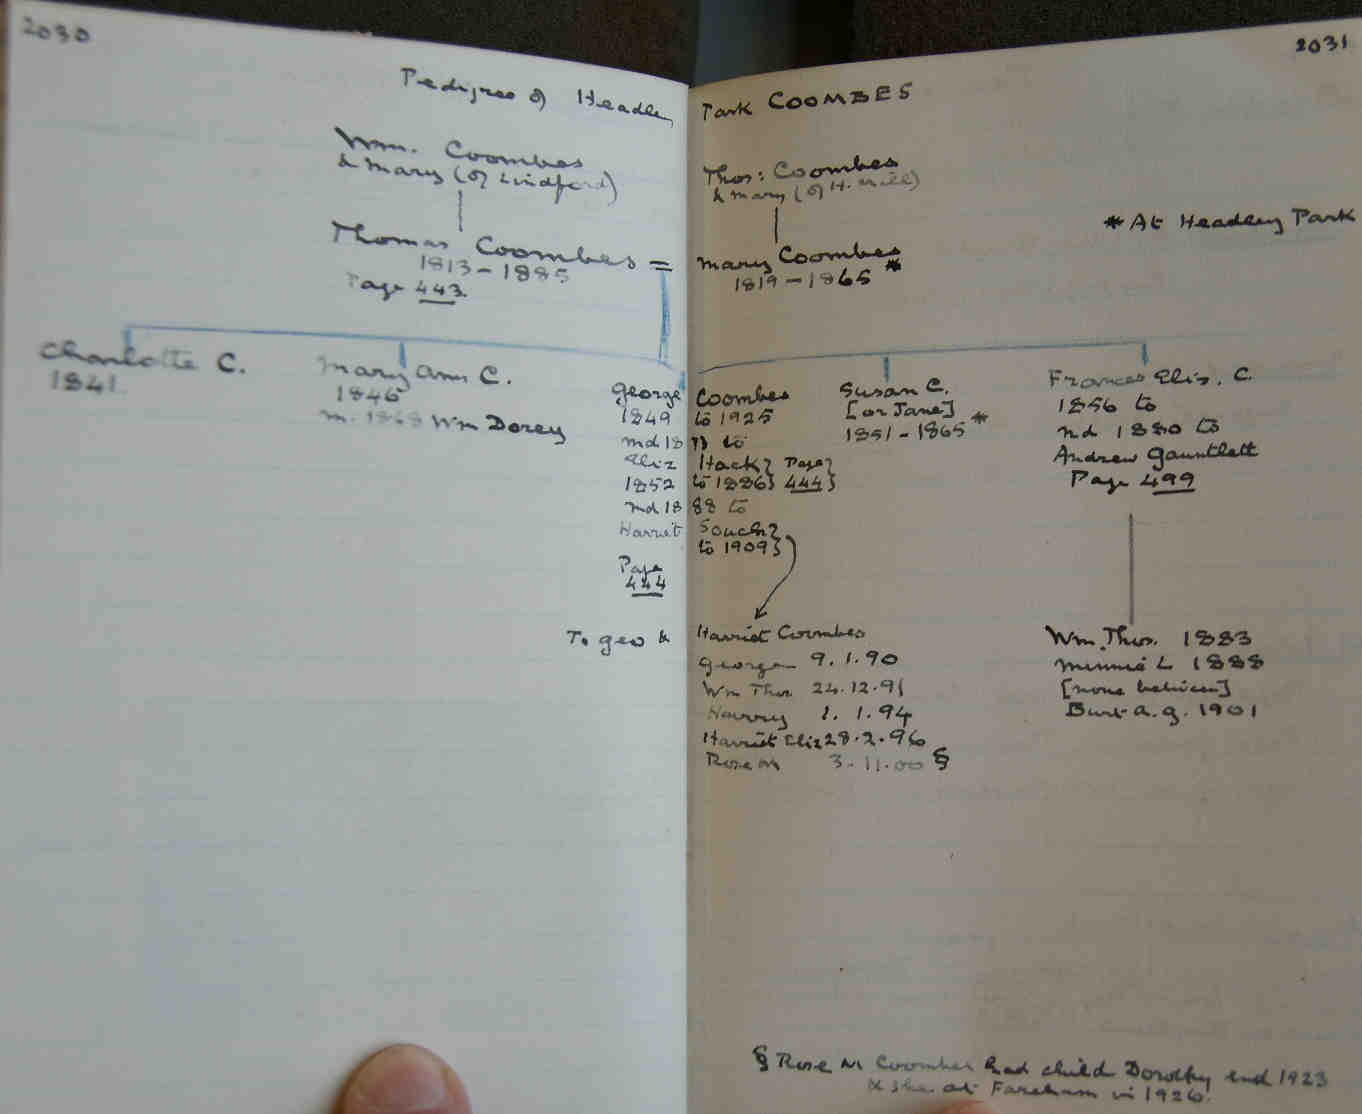 2030
2031
Pedigree of Headley Park COOMBES
Wm. Coombes
& Mary (of Lindford)
Thos: Coombes
& Mary (of H. Mill)
* At Headley Park
Thomas Coombes =
1813 - 1885
Page 443.
Mary Coombes
1819 - 1865 *
Charlotte C.
1841
Mary Ann C.
1846
m. 1868 Wm Dorey
George Coombes
1849 to 1925
md 18 to
Eliz Hack } Page }
1852 to 1886 } 444 }
md 1888 to
Harriet Souch }
to 1909 }
Page
444
Susan C.
[or Jane]
1851 - 1865 *
Frances Eliz. C.
1856 to
md 1880 to
Andrew Gauntlett
Page 499
To Geo & Harriet Coombes
George 9.1.90
Wm Thos 24.12.91
Harry 1.1.94
Harriet Eliz 28.2.96
Rose M 3.11.00 §
Wm. Thos. 1883
Minnie L 1888
[none between]
Burt A.G. 1901
§ Rose M Coombes had child Dorothy end 1923
& she at Fareham in 1926.